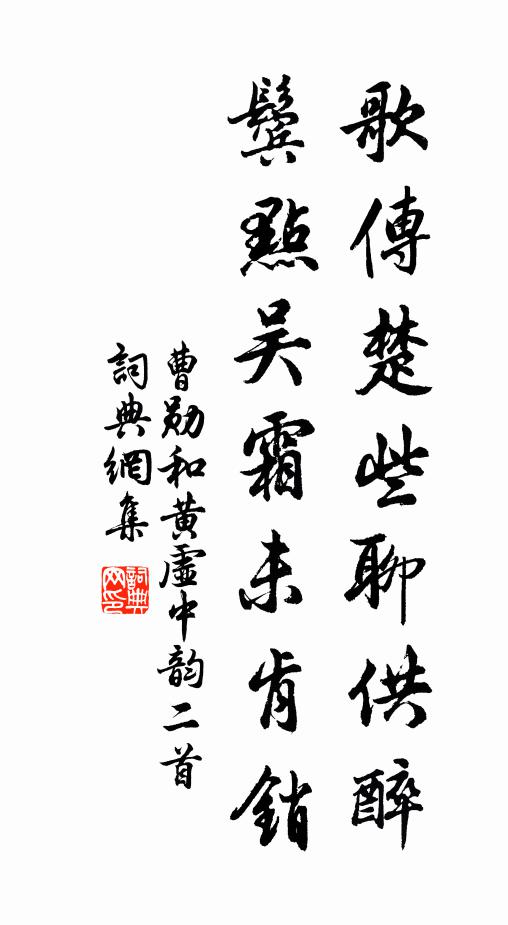 歌傳楚些聊供醉
鬓點吴霜未肯銷
曹勋和黄虛中韵二首
詞典網集
詞典網印